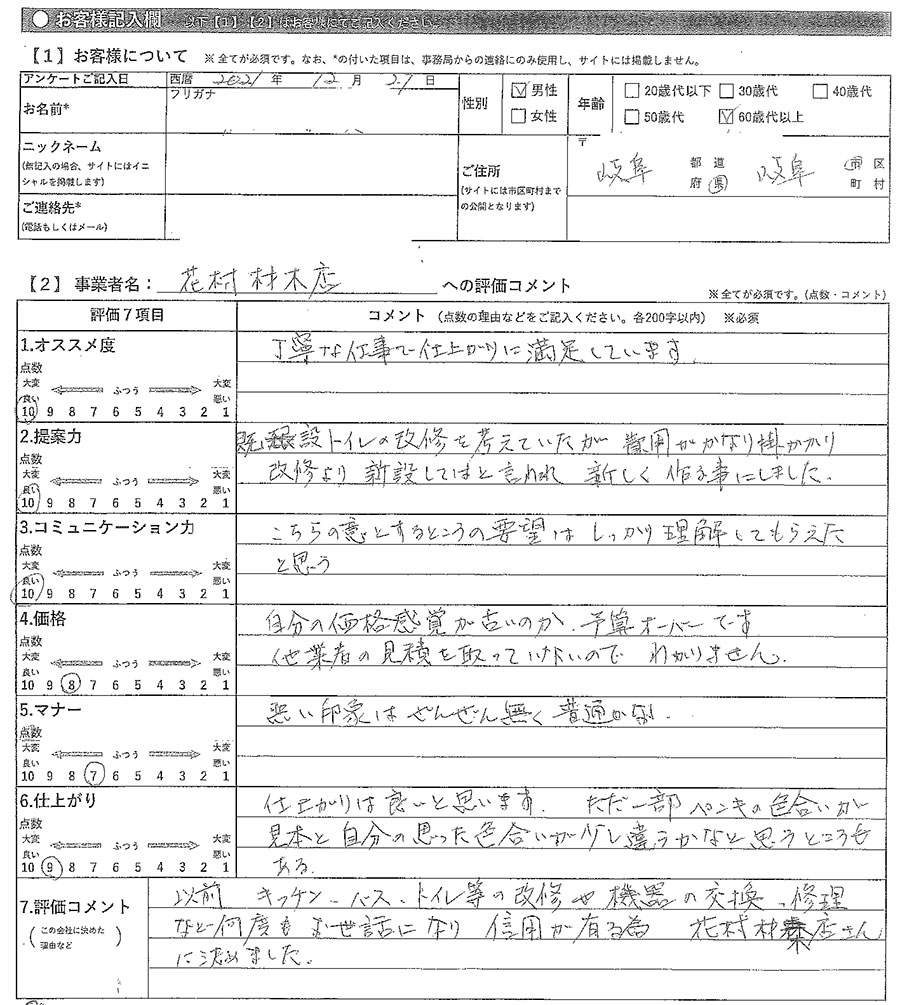 ● お客様記入欄 以下【1】【2】はお客様にてご記入ください。
【1】お客様について ※ 全てが必須です。なお、*の付いた項目は、事務局からの連絡にのみ使用し、サイトには掲載しません。
アンケートご記入日 西暦 2021 年 12 月 21 日
お名前* フリガナ
性別 ☑ 男性 □ 女性
年齢 □ 20歳代以下 □ 30歳代 □ 40歳代
□ 50歳代 ☑ 60歳代以上
ニックネーム
(無記入の場合、サイトにはイニ
シャルを掲載します)
ご連絡先*
(電話もしくはメール)
ご住所
(サイトには市区町村まで
の公開となります)
〒
岐阜 都 道 府 県 岐阜 市 区 町 村
【2】事業者名: 花村材木店 への評価コメント
※全てが必須です。(点数・コメント)
評価7項目 コメント (点数の理由などをご記入ください。各200字以内) ※必須
1.オススメ度
点数
大変 ふつう 大変
良い 悪い
10 9 8 7 6 5 4 3 2 1
丁寧な仕事で仕上がりに満足しています。
2.提案力
点数
大変 ふつう 大変
良い 悪い
10 9 8 7 6 5 4 3 2 1
既設トイレの改修を考えていたが 費用がかなり掛かかり
改修より新設してはと言われ 新しく作る事にしました。
3.コミュニケーション力
点数
大変 ふつう 大変
良い 悪い
10 9 8 7 6 5 4 3 2 1
こちらの意とするところの要望は しっかり理解してもらえた
と思う
4.価格
点数
大変 ふつう 大変
良い 悪い
10 9 8 7 6 5 4 3 2 1
自分の価格感覚が古いのか、予算オーバーです
他業者の見積を取っていないので わかりません。
5.マナー
点数
大変 ふつう 大変
良い 悪い
10 9 8 7 6 5 4 3 2 1
悪い印象はぜんぜん無く普通かな。
6.仕上がり
点数
大変 ふつう 大変
良い 悪い
10 9 8 7 6 5 4 3 2 1
仕上がりは良いと思います。 ただ一部ペンキの色合いが
見本と自分の思った色合いが少し違うかなと思うところも
ある。
7.評価コメント
(この会社に決めた
理由など)
以前 キッチン、バス、トイレ等の改修や機器の交換、修理
など何度もお世話になり 信用が有る為 花村材木店さん
に決めました。